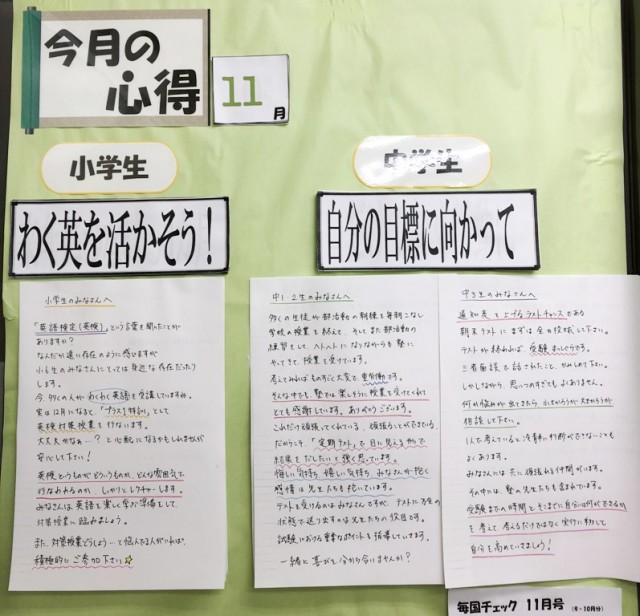 今月の
心得
11
月
小学生
中学生
わく英を活かそう！
自分の目標に向かって
小学生のみなさんへ
「英語検定(英検)」という言葉を聞いたことが
ありますか？
なんだか遠い存在のように感じますが
小学生のみなさんにとっては身近な存在だったり
します。
今、多くのみんが わくわく英語を受講していますね。
実は12月になると、「プラス1特訓」として
英検対策授業を行ないます。
大丈夫かなぁ…？と心配になるかもしれませんが
安心して下さい！
英検というものがどういうものか、どんな雰囲気で
行なわれるのか しっかりとレクチャーします。
みなさんは英語を楽しく学ぶ準備をして、
対策授業に臨みましょう。
また、対策授業どうしよう…と悩んでる人がいれば、
積極的に ご参加下さい☆
中1・2生のみなさんへ
多くの生徒が部活動の朝練を毎朝こなし
学校の授業を終えて、そしてまた部活動の
練習をして、ヘトヘトになりながらも塾に
やってきて、授業を受けています。
考えてみればものすごく大変で、重労働です。
そんな中でも、塾では楽しそうに授業を受けてくれて
とても感謝しています。ありがとうございます。
これだけ頑張ってくれている、頑張ることができている
だからこそ、「定期テスト」で目に見える形で
結果をだしたいと強く思っています。
悔しい気持ち、嬉しい気持ち みなさんが抱く
感情は先生たちも抱いています。
テストを受けるのはみなさんですが、テストに万全の
状態で送り出すのは先生たちの役目です。
試験における重要なポイントも指導していきます。
一緒に喜びを分かち合いませんか？
中3生のみなさんへ
通知表を上げるラストチャンスである
期末テストにまずは全力投球して下さい。
テストが終われば、受験まっしぐらです。
三者面談で話されたこと、かみしめて下さい。
しかしながら 思いつめすぎもよくありません。
何か悩みが出てきたら 小さかろうが大きかろうが
相談して下さい。
1人で考えていると冷静に判断ができないことも
よくあります。
みなさんには共に頑張れる仲間がいます。
その中には、塾の先生たちも含まれています。
受験までの時間でそこまでに自分は何ができるか
を考えて、考えるだけではなく実行に移して
自分を高めていきましょう！
毎国チェック 11月号
(9・10月分)